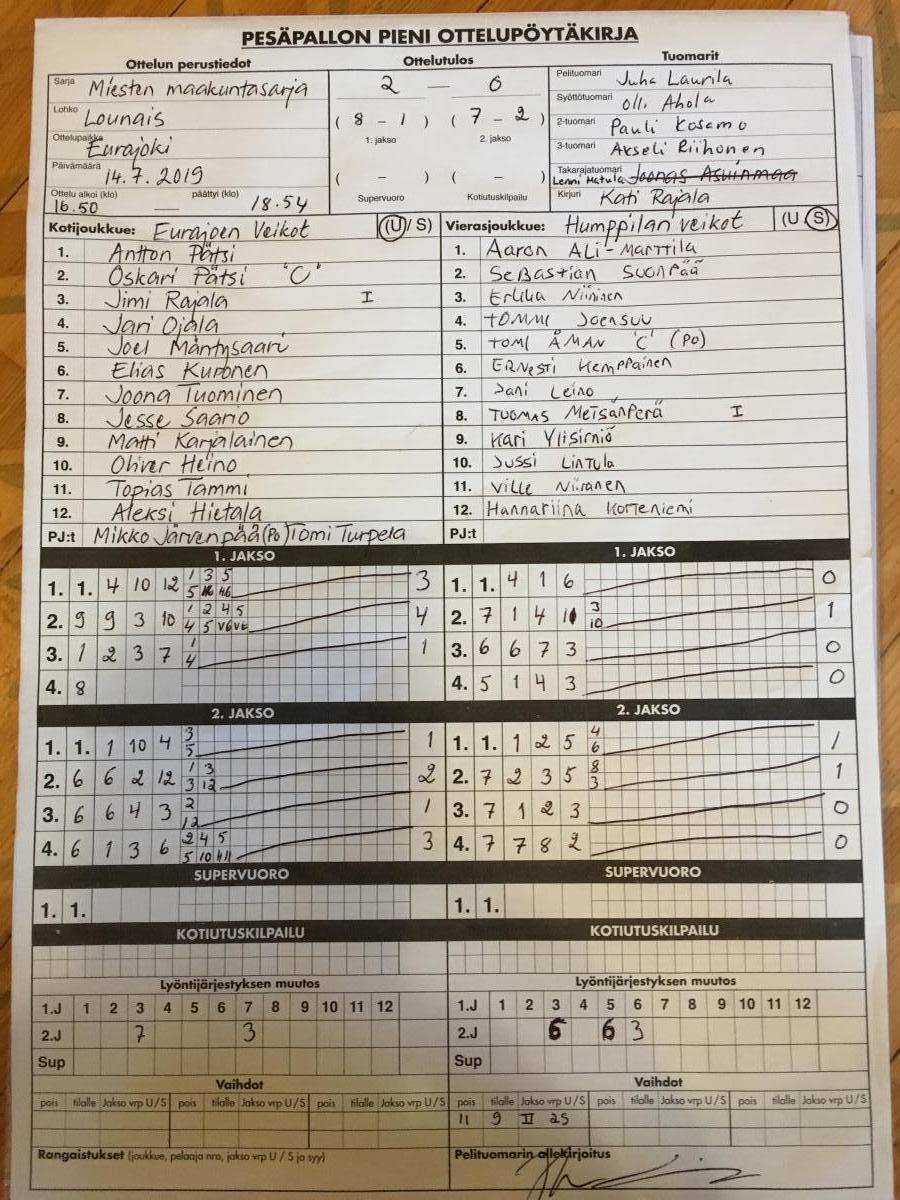 PESÄPALLON PIENI OTTELUPÖYTÄKIRJA
Ottelun perustiedot
Sarja Miesten maakuntasarja
Lohko Lounais
Ottelupaikka Eurajoki
Päivämäärä 14.7.2019
Ottelu alkoi (klo) päättyi (klo)
16.50 — 18.54
Ottelutulos
2 — 0
( 8 - 1 ) ( 7 - 2 )
1. jakso 2. jakso
( - ) ( - )
Supervuoro Kotiutuskilpailu
Tuomarit
Pelituomari Juha Laurila
Syöttötuomari Olli Ahola
2-tuomari Pauli Kosamo
3-tuomari Akseli Riihonen
Takarajatuomari Lenni Matula Joonas Asuinmaa
Kirjuri Kati Rajala
Kotijoukkue: Eurajoen Veikot (U/ S)
1. Antton Pätsi
2. Oskari Pätsi 'C'
3. Jimi Rajala I
4. Jari Ojala
5. Joel Mäntysaari
6. Elias Kuronen
7. Joona Tuominen
8. Jesse Saario
9. Matti Karjalainen
10. Oliver Heino
11. Topias Tammi
12. Aleksi Hietala
PJ:t Mikko Järvenpää (Po) Tomi Turpela
Vierasjoukkue: Humppilan veikot (U S)
1. Aaron ALi-Marttila
2. SeBastian SuonPää
3. Erkka Niininen
4. TOMMI Joensuu
5. TOMI ÅMAN 'C' (Po)
6. ERNESTI Kemppainen
7. Jani Leino
8. TUOMAS Metsänperä I
9. Kari Ylisirniö
10. Jussi LinTula
11. Ville Niiranen
12. Hannariina Korteniemi
PJ:t
1. JAKSO
1. 1. 4 10 12 1 3 5 3
5 46
2. 9 9 3 10 1 2 4 5 4
4 5 V6 V6
3. 1 2 3 7 1 1
4
4. 8
1. JAKSO
1. 1. 4 1 6 0
2. 7 1 4 3 1
10
3. 6 6 7 3 0
4. 5 1 4 3 0
2. JAKSO
1. 1. 1 10 4 3 1
5
2. 6 6 2 12 1 3 2
3 12
3. 6 6 4 3 2 1
12
4. 6 1 3 6 2 4 5 3
5 10 11
2. JAKSO
1. 1. 1 2 5 4 1
6
2. 7 2 3 5 8 1
3
3. 7 1 2 3 0
4. 7 7 8 2 0
SUPERVUORO
1. 1.
SUPERVUORO
1. 1.
KOTIUTUSKILPAILU
KOTIUTUSKILPAILU
Lyöntijärjestyksen muutos
1.J 1 2 3 4 5 6 7 8 9 10 11 12
2.J 7 3
Sup
Lyöntijärjestyksen muutos
1.J 1 2 3 4 5 6 7 8 9 10 11 12
2.J 6 6 3
Sup
Vaihdot
pois tilalle Jakso vrp U / S pois tilalle Jakso vrp U / S pois tilalle Jakso vrp U / S
Vaihdot
pois tilalle Jakso vrp U / S pois tilalle Jakso vrp U / S pois tilalle Jakso vrp U / S
11 9 II 2S
Rangaistukset (joukkue, pelaaja nro, jakso vrp U / S ja syy)
Pelituomarin allekirjoitus